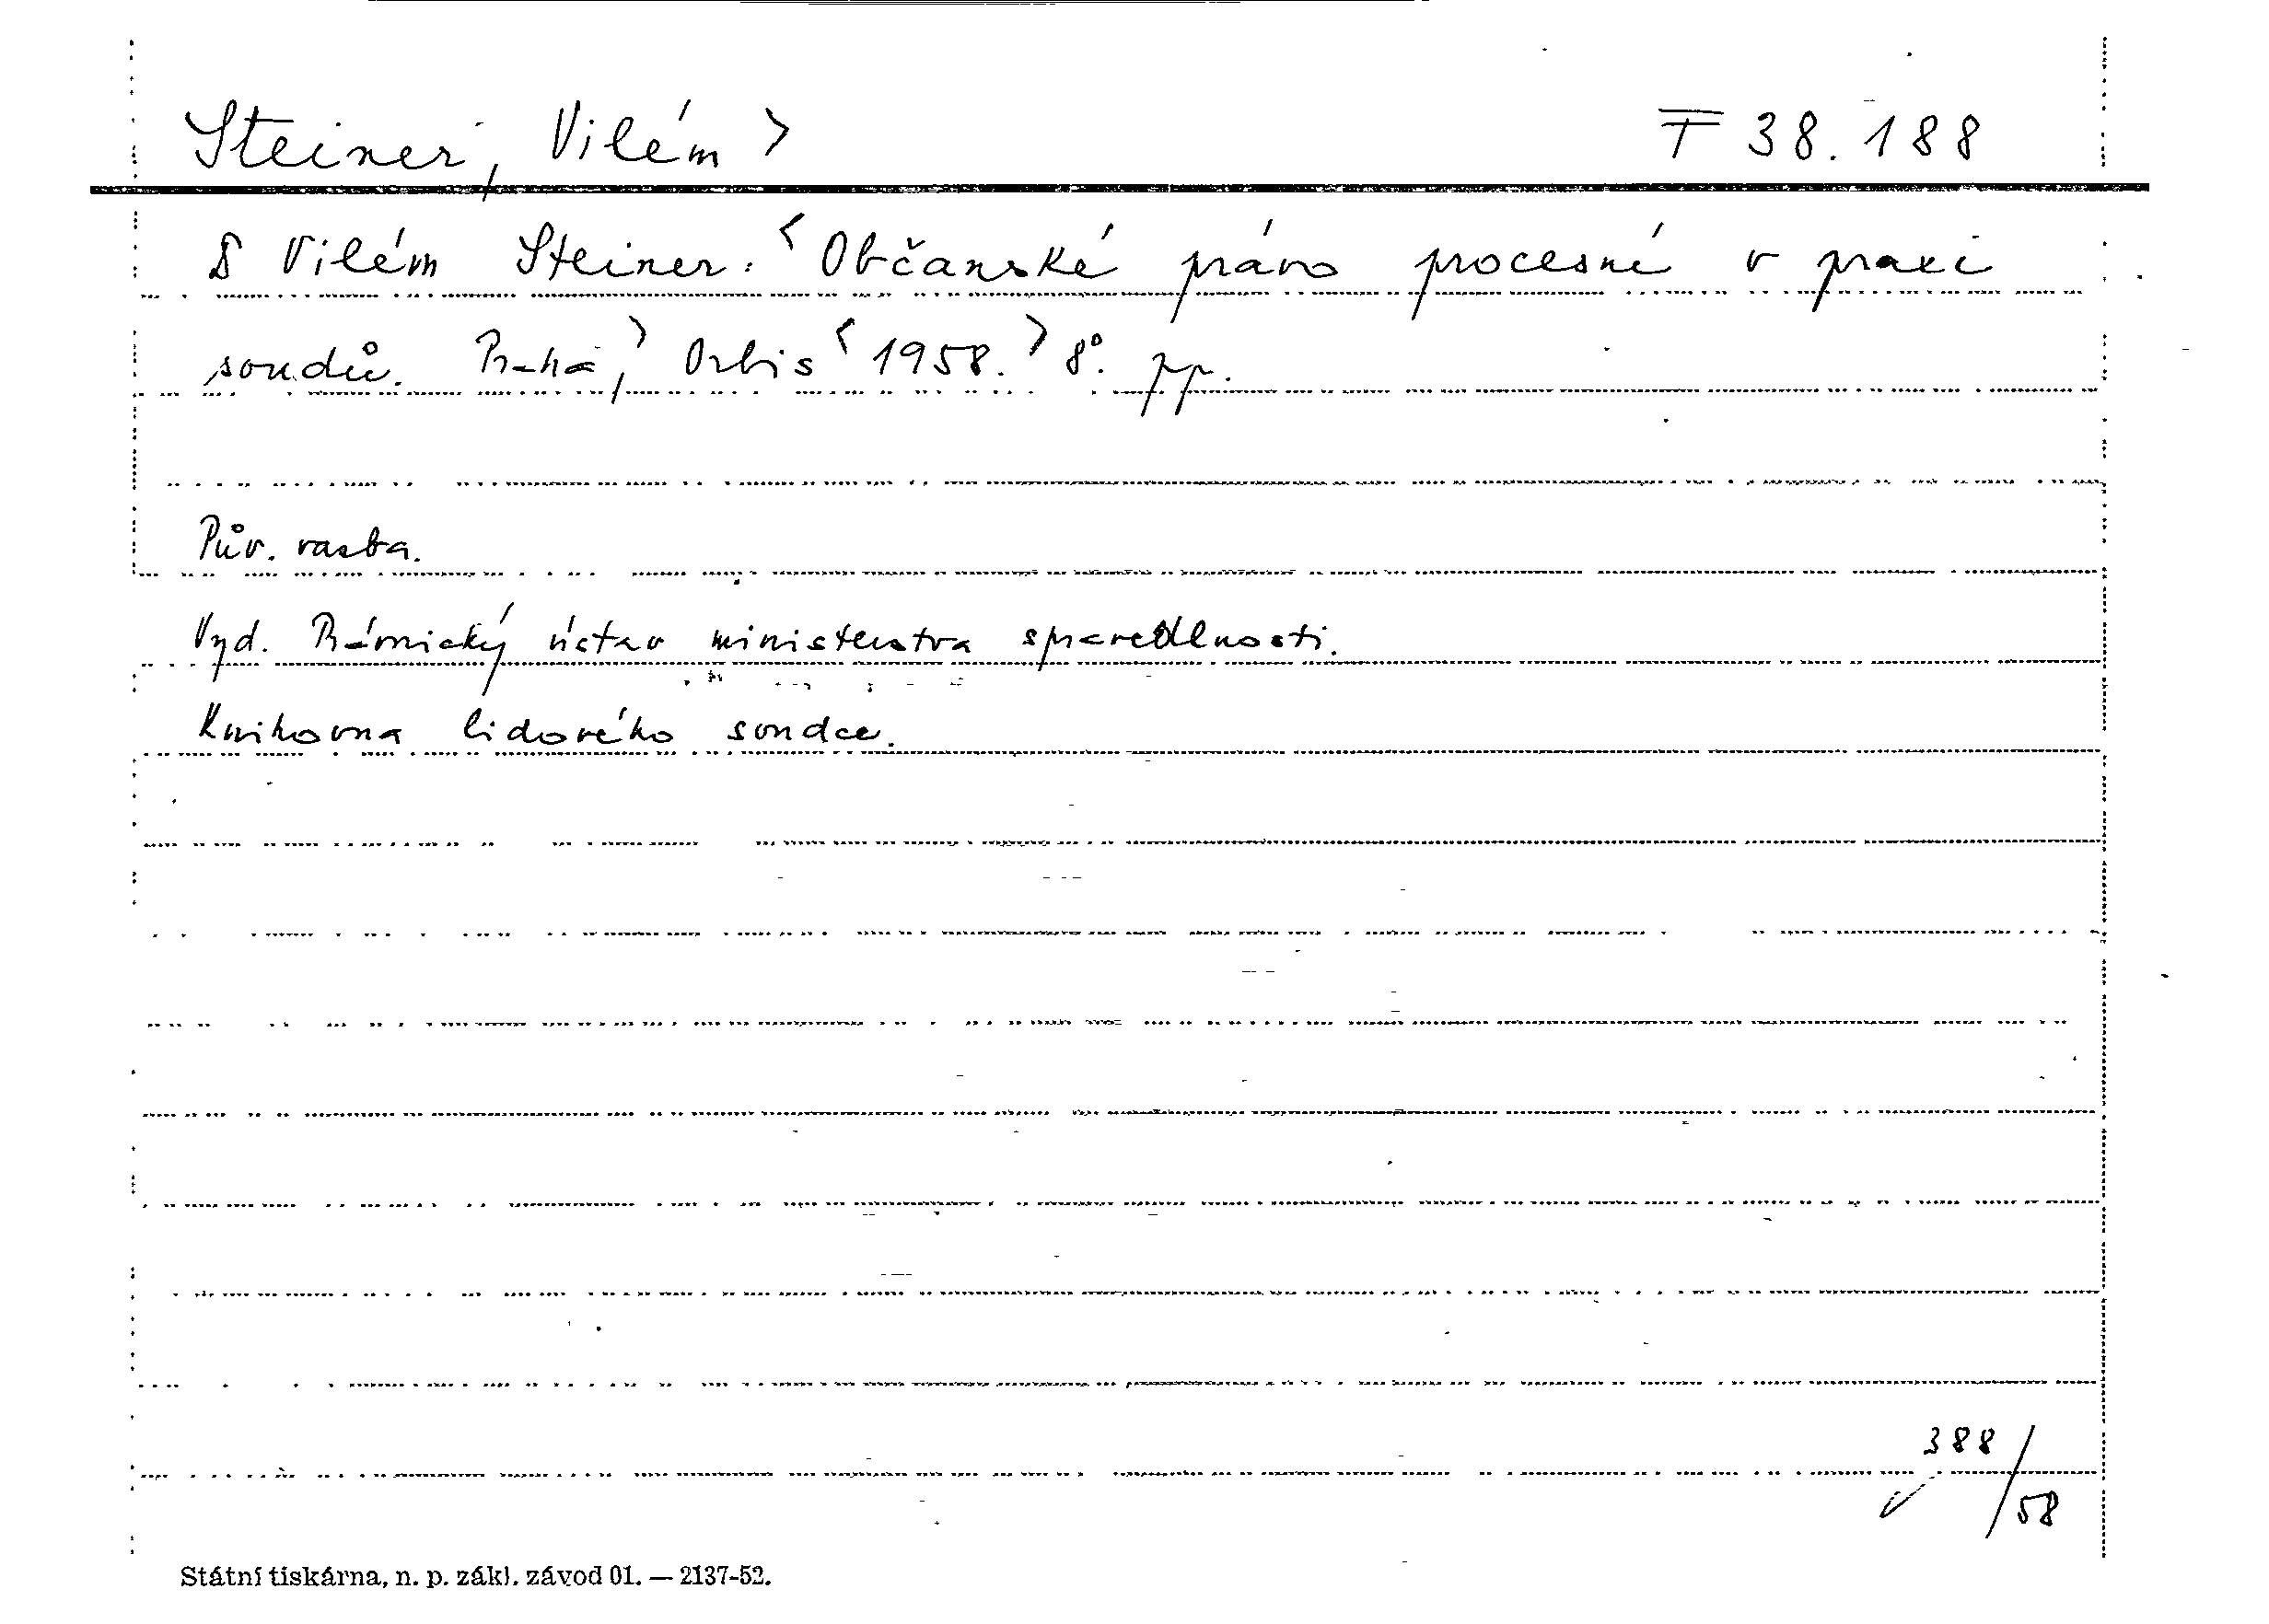 Steiner, Vilém > F 38.188
§ Vilém Steiner: < Občanské právo procesné v praxi
soudů. Praha, > Orbis < 1958. > 8°. pp.
Pův. vazba.
Vyd. Právnický ústav ministerstva spravedlnosti.
Knihovna lidového soudce.
388/58
Státní tiskárna, n. p. zákl. závod 01. — 2137-52.